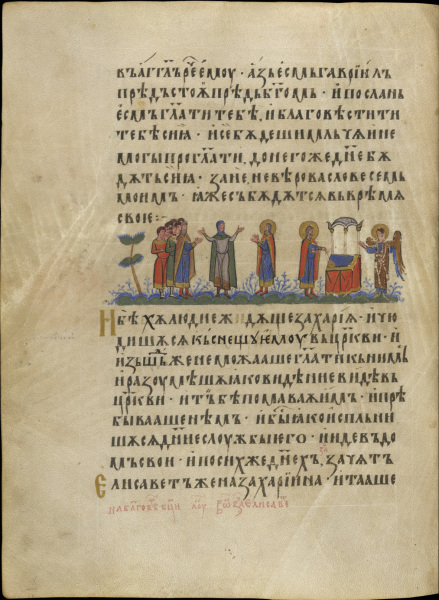 къ агг҃лъ рⷱ҇е емоу · азъ есмь гаврїилъ
прѣдъстоѫ прѣдъ бг҃омь · и посланъ
есмъ гл҃ати тебѣ, и благовѣстити
тебѣ сиа · и се бѫдеши мльчѧ и не
могы прогл҃ати, донегоже дн҃е бѫ
дѫтъ сиа · зане не вѣрова словесемь
моимъ · ѩже събѫдѫтсѧ въ врѣмѧ
свое :~
И бѣхѫ людие жидѫще захариѧ · и чю
дишѫсѧ къснѧщу емоу въ цр҃кви · и
изьшⷣъ же не можааше гл҃ати къ нимь
и разоумѣшѫ ꙗко видѣние видѣ въ
цр҃кви · и тъ бѣ помаваѫ имъ · и прѣ
бывааше нѣмъ · и бы ꙗко исплъни
шѫсѧ дн҃ие слоужбы его · и иде въ до
мъ свои · и по сих же днех, зачѧтъ
Елисаветъ жена захариина · и таѣше